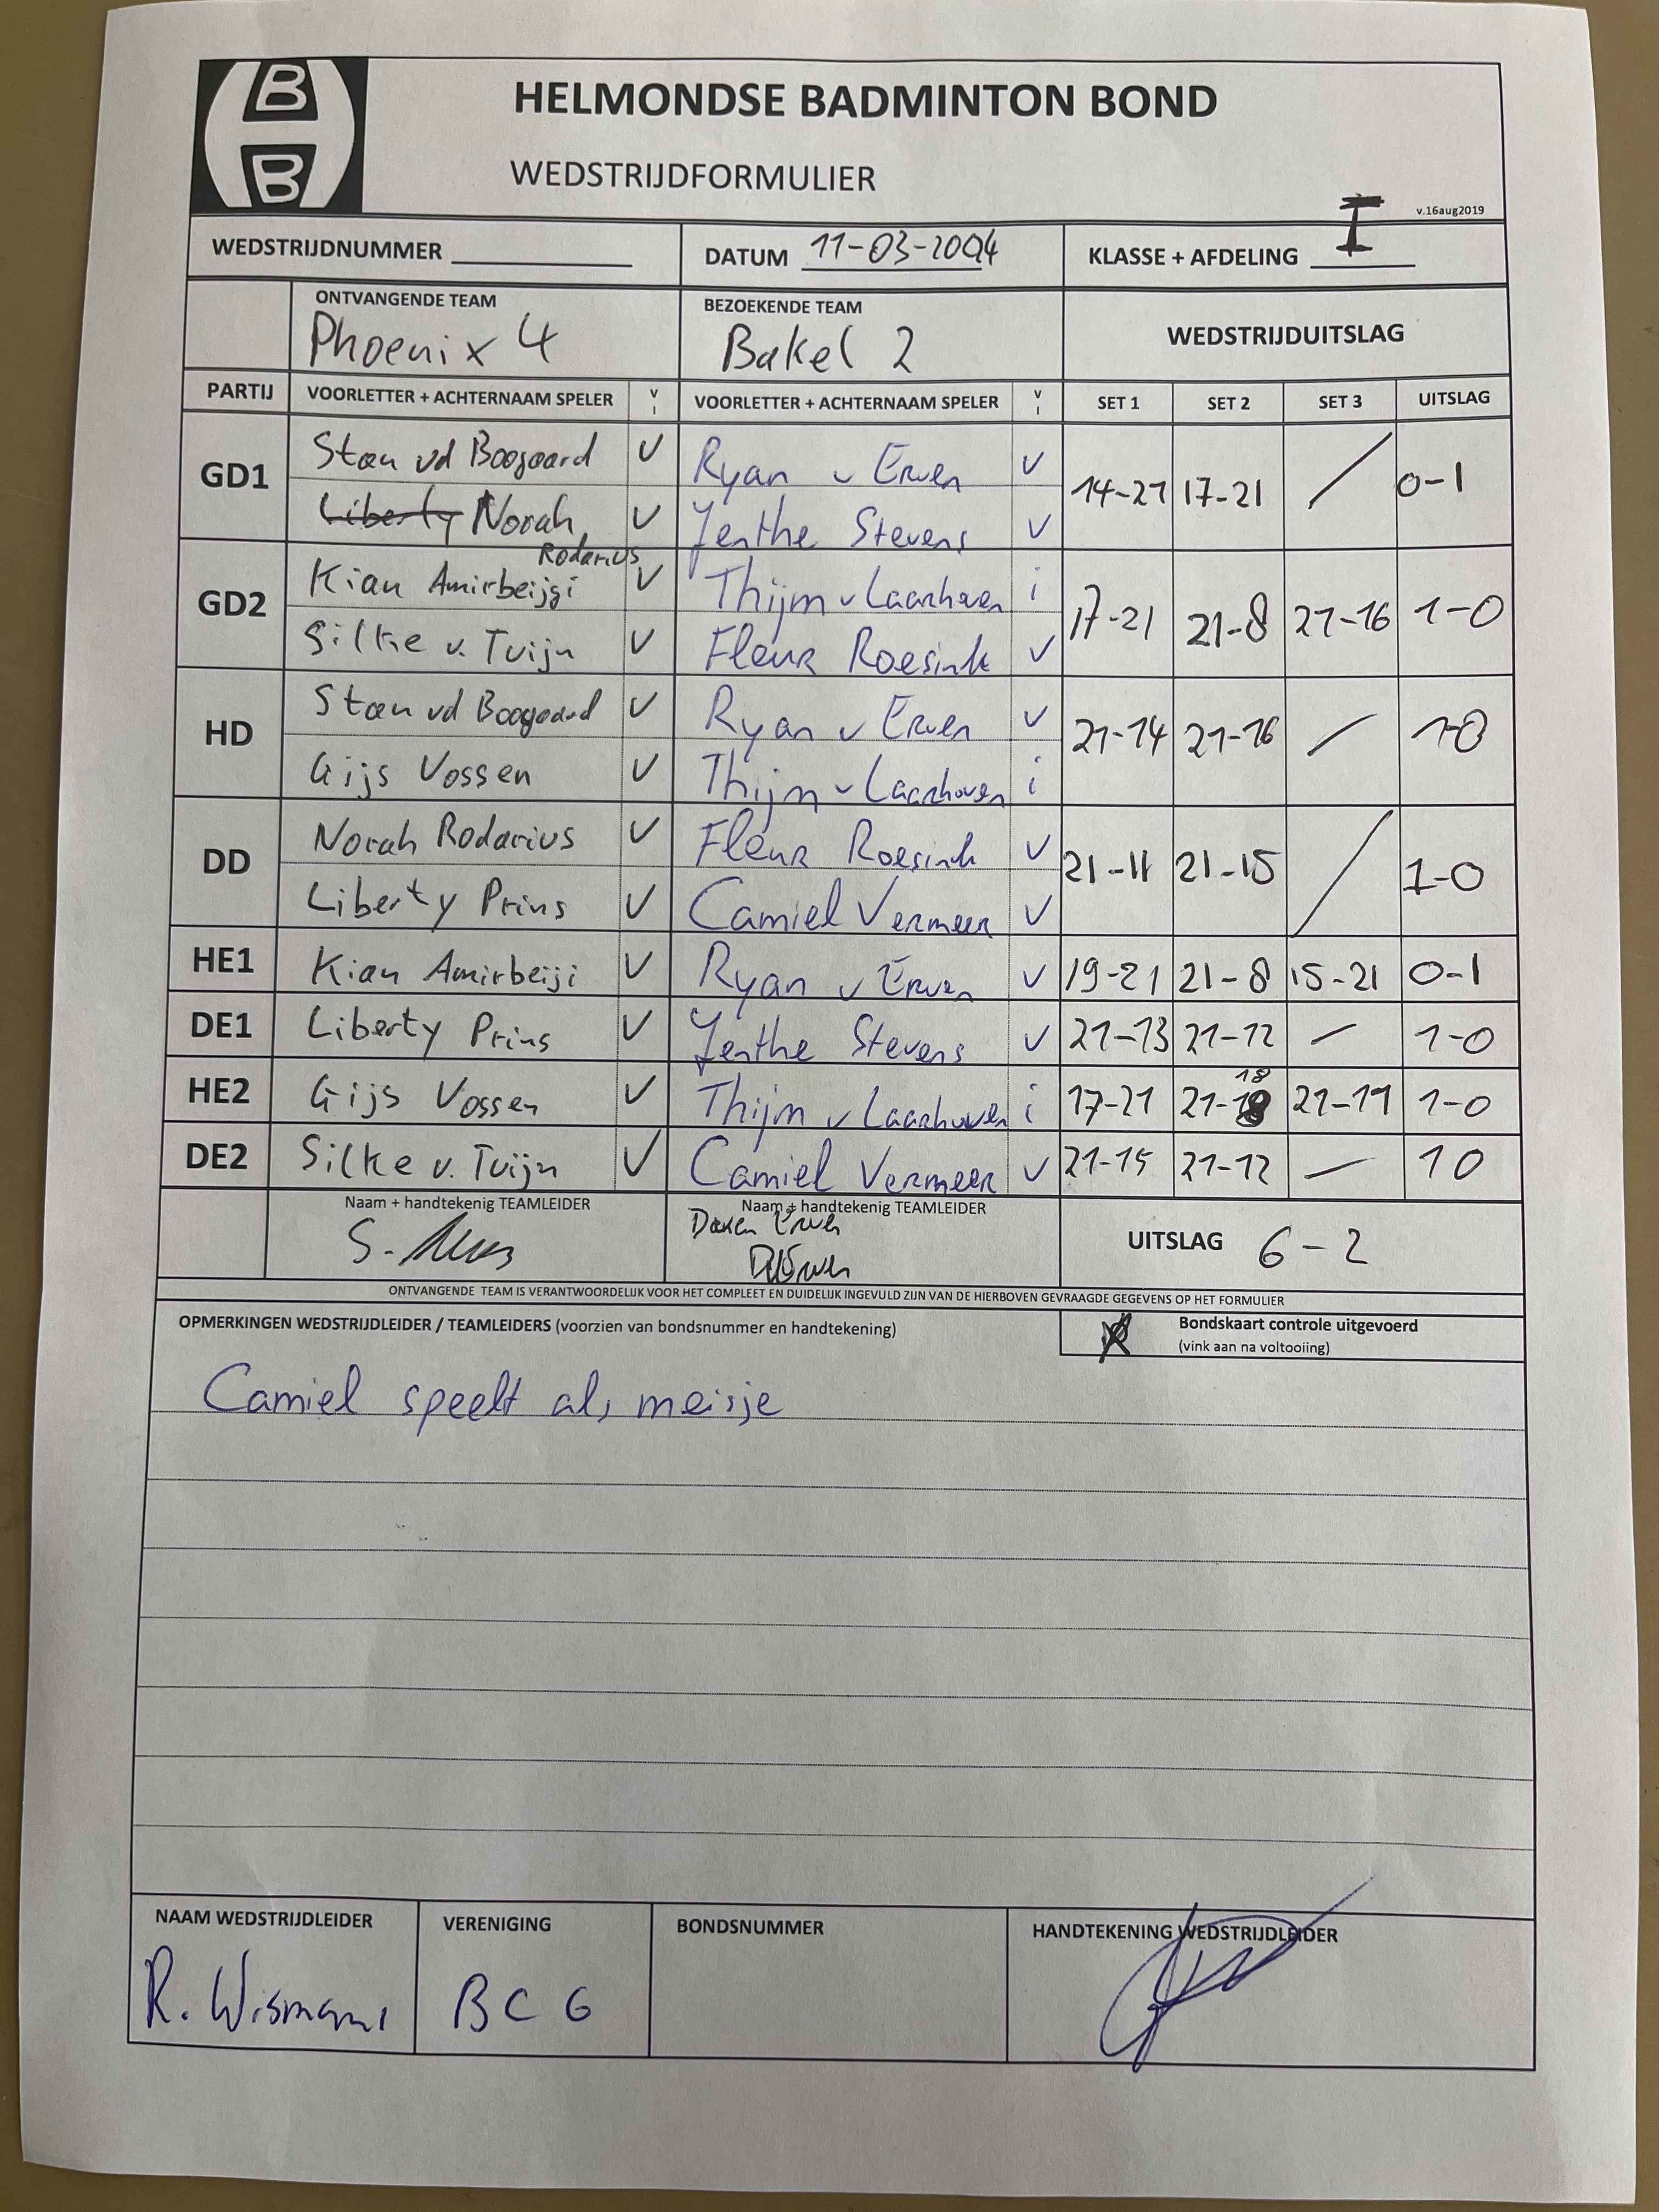 B
B
HELMONDSE BADMINTON BOND
WEDSTRIJDFORMULIER
v.16aug2019
WEDSTRIJDNUMMER DATUM 11-03-2004 KLASSE + AFDELING I
ONTVANGENDE TEAM BEZOEKENDE TEAM
Phoenix 4 Bakel 2 WEDSTRIJDUITSLAG
PARTIJ VOORLETTER + ACHTERNAAM SPELER V I VOORLETTER + ACHTERNAAM SPELER V I SET 1 SET 2 SET 3 UITSLAG
GD1 Stan vd Boogaard V Ryan v Erven V 14-21 17-21 / 0-1
Liberty Norah Rodarius V Jenthe Stevens V
GD2 Kian Amirbeijgi V Thijm v Laarhoven i 17-21 21-8 21-16 1-0
Silke v. Tuijn V Fleur Roesink V
HD Stan vd Boogaard V Ryan v Erven V 21-14 21-16 / 1-0
Gijs Vossen V Thijm v Laarhoven i
DD Norah Rodarius V Fleur Roesink V 21-11 21-15 / 1-0
Liberty Prins V Camiel Vermeer V
HE1 Kian Amirbeiji V Ryan v Erven V 19-21 21-8 15-21 0-1
DE1 Liberty Prins V Jenthe Stevens V 21-13 21-12 - 1-0
HE2 Gijs Vossen V Thijm v Laarhoven i 17-21 21-18 21-19 1-0
DE2 Silke v. Tuijn V Camiel Vermeer V 21-15 21-12 - 1 0
Naam + handtekenig TEAMLEIDER Naam + handtekenig TEAMLEIDER
UITSLAG 6-2
ONTVANGENDE TEAM IS VERANTWOORDELIJK VOOR HET COMPLEET EN DUIDELIJK INGEVULD ZIJN VAN DE HIERBOVEN GEVRAAGDE GEGEVENS OP HET FORMULIER
OPMERKINGEN WEDSTRIJDLEIDER / TEAMLEIDERS (voorzien van bondsnummer en handtekening) Bondskaart controle uitgevoerd
(vink aan na voltooiing)
Camiel speelt als meisje
NAAM WEDSTRIJDLEIDER VERENIGING BONDSNUMMER HANDTEKENING WEDSTRIJDLEIDER
R. Wismans BCG